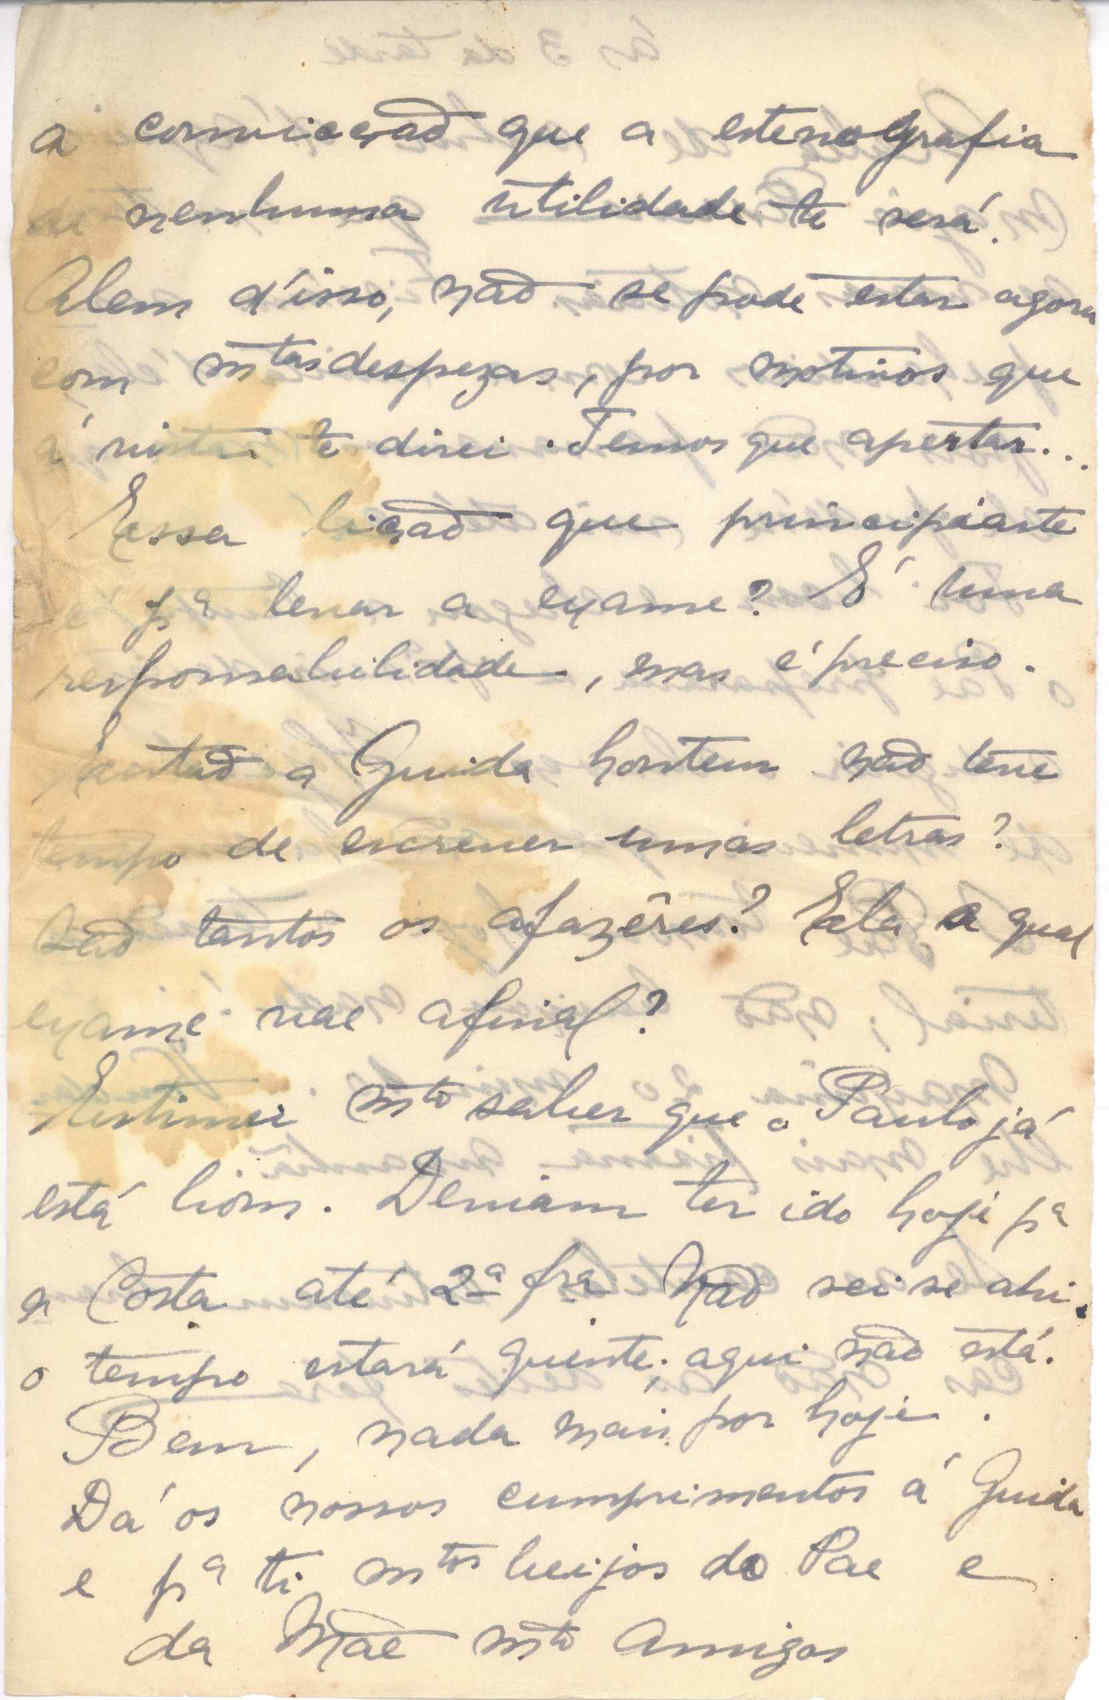 a convicção que a estenografia
de nenhuma utilidade te será.
Alem d'isso, não se pode estar agora
com mtas despezas, por motivos que
á vista te direi. Temos que apertar...
Essa lição que principiaste
é pa levar a exame? É uma
responsabilidade, mas é preciso.
Então a Guida hontem não teve
tempo de escrever umas letras?
São tantos os afazêres? Ela a qual
exame vae afinal?
Estimei mto saber que o Paulo já
está bom. Deviam ter ido hoje pa
a Costa até 2a fra Não sei se ahi
o tempo estará quente; aqui não está.
Bem, nada mais por hoje.
Dá os nossos cumprimentos á Guida
e pa ti mtos beijos do Pae e
da Mãe mto Amigos